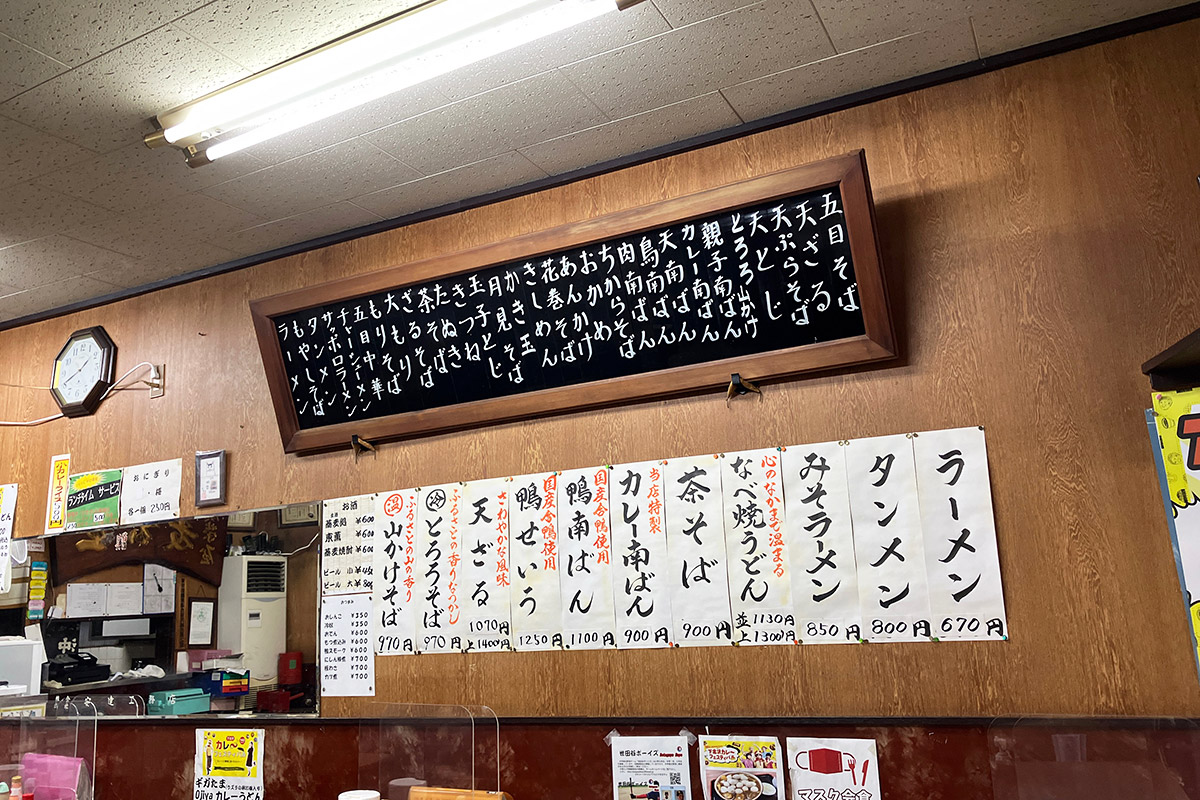 五目そば
天ざる
天ぷらそば
天とじ
とろろ山かけ
親子南ばん
カレー南ばん
天南ばん
鳥南ばん
肉南ばん
ちからそば
おかめ
あんかけ
花巻そば
きしめん
かき玉
月見そば
玉子とじ
きつね
たぬき
茶そば
ざるそば
大もり
もりそば
五目中華
チャーシューメン
サッポロラーメン
タンメン
もやしそば
ラーメン
ラーメン
670円
タンメン
800円
みそラーメン
850円
心のなかまで温まる
なべ焼うどん
並1130円
上1300円
茶そば
900円
当店特製
カレー南ばん
900円
国産合鴨使用
鴨南ばん
1100円
国産合鴨使用
鴨せいろ
1250円
さわやかな風味
天ざる
1070円
上1400円
ふるさとの香りなつかし
冷 とろろそば
970円
ふるさとの山の香り
温 山かけそば
970円
お酒
蕎麦焼酎 ¥600
ビール 小
ビール 大
おつまみ
おしんこ ¥350
冷奴 ¥350
おでん ¥600
もつ煮込み ¥600
鴨スモーク ¥600
にしん棒煮 ¥700
板わさ ¥700
おにぎり
各一種 250円
ランチタイム サービス
世田谷ボーイズ
下北沢カレーフェスティバル
マスク会食
カレーうどん